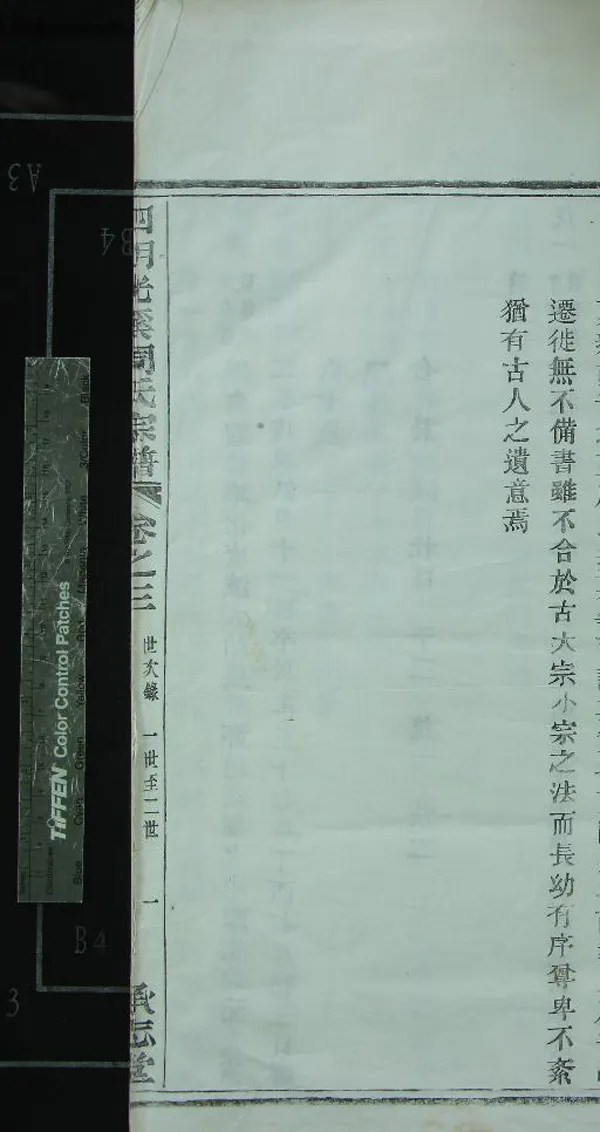 遷徙無不備書雖不合於古大宗小宗之法而長幼有序尊卑不紊
猶有古人之遺意焉
四明光溪周氏宗譜
卷之三
世次錄 一世至二世
一
承志堂
A3
B4
B4
3
TIFFEN Color Control Patches
Blue
Green
Yellow
Red
Magenta
White
3/Color
Black